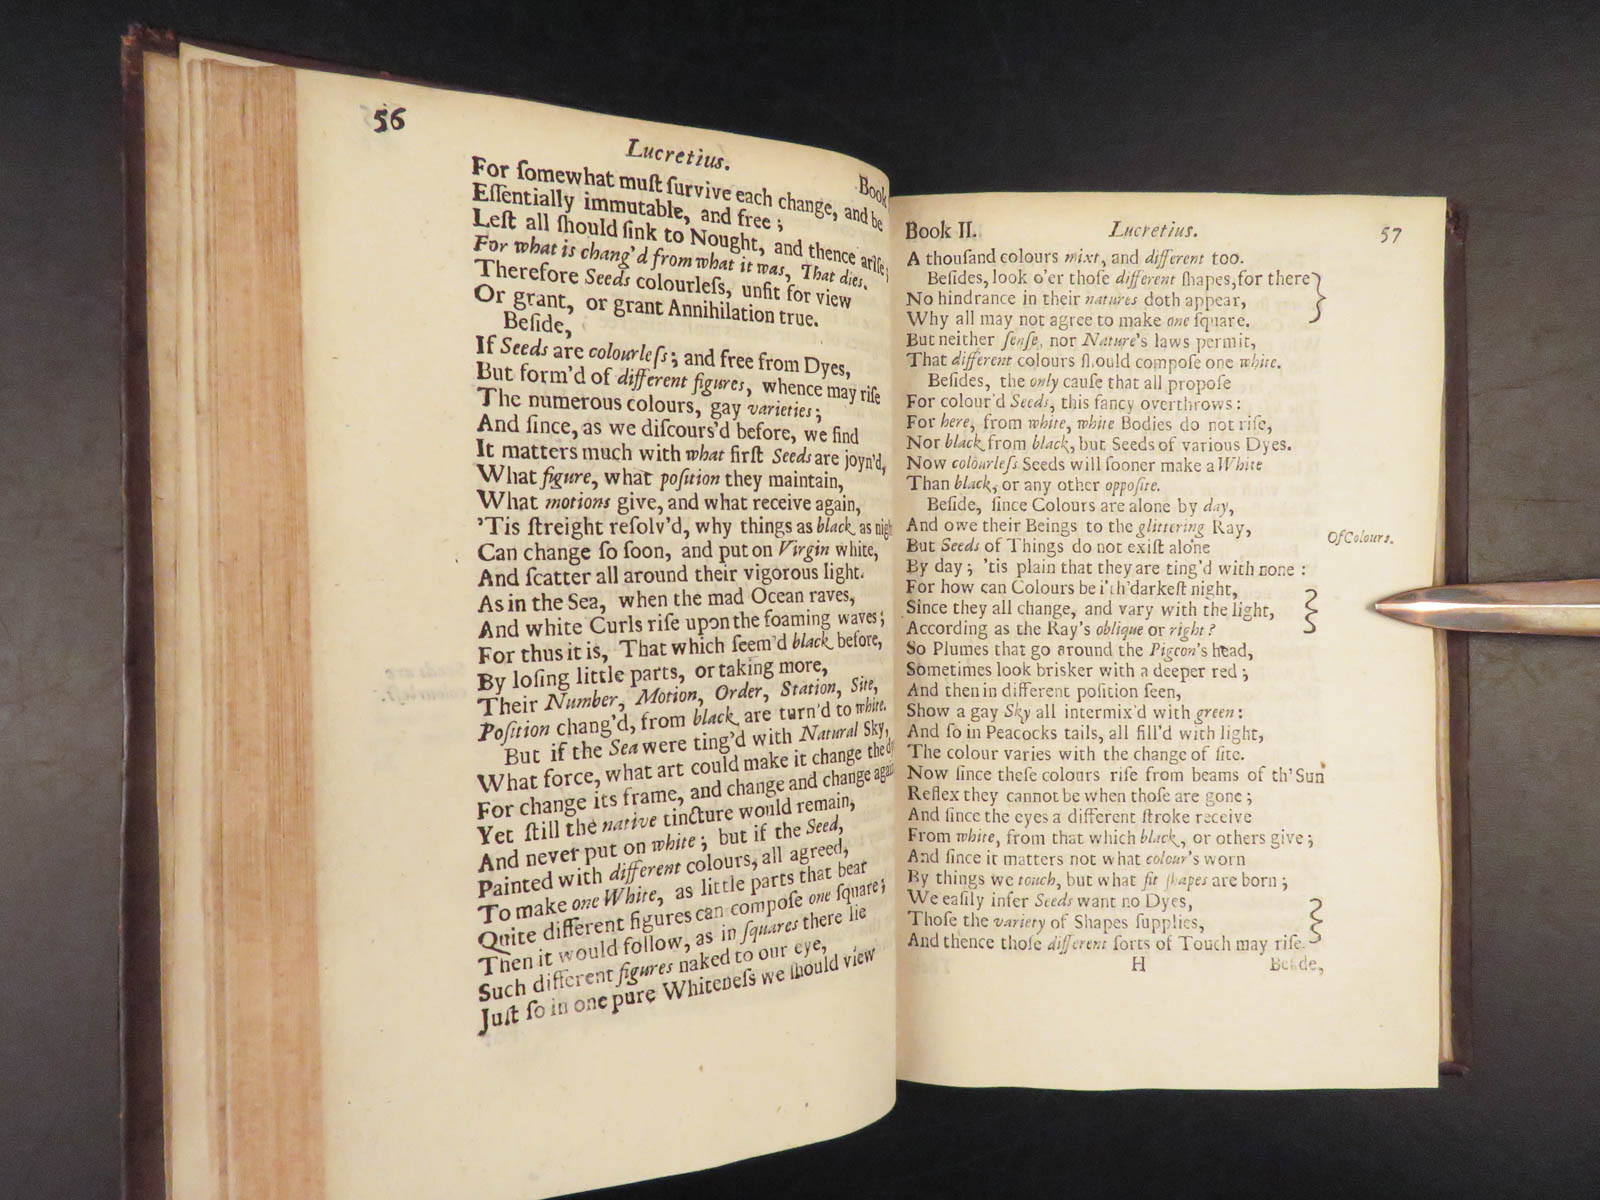 56
Lucretius.
Book
For ſomewhat muſt ſurvive each change, and be
Eſſentially immutable, and free;
Leſt all ſhould ſink to Nought, and thence ariſe;
For what is chang'd from what it was, That dies.
Therefore Seeds colourleſs, unfit for view
Or grant, or grant Annihilation true.
Beſide,
If Seeds are colourleſs; and free from Dyes,
But form'd of different figures, whence may riſe
The numerous colours, gay varieties;
And ſince, as we diſcours'd before, we find
It matters much with what firſt Seeds are joyn'd,
What figure, what poſition they maintain,
What motions give, and what receive again,
'Tis ſtreight reſolv'd, why things as black as nigh
Can change ſo ſoon, and put on Virgin white,
And ſcatter all around their vigorous light.
As in the Sea, when the mad Ocean raves,
And white Curls riſe upon the foaming waves;
For thus it is, That which ſeem'd black before,
By loſing little parts, or taking more,
Their Number, Motion, Order, Station, Site,
Poſition chang'd, from black are turn'd to white.
But if the Sea were ting'd with Natural Sky,
What force, what art could make it change the d
For change its frame, and change and change again
Yet ſtill the native tincture would remain,
And never put on white; but if the Seed,
Painted with different colours, all agreed,
To make one White, as little parts that bear
Quite different figures can compoſe one ſquare;
Then it would follow, as in ſquares there lie
Such different figures naked to our eye,
Juſt ſo in one pure Whiteneſs we ſhould view
Book II.
Lucretius.
57
A thouſand colours mixt, and different too.
Beſides, look o'er thoſe different ſhapes, for there
No hindrance in their natures doth appear,
Why all may not agree to make one ſquare.
But neither ſenſe, nor Nature's laws permit,
That different colours ſhould compoſe one white.
Beſides, the only cauſe that all propoſe
For colour'd Seeds, this fancy overthrows:
For here, from white, white Bodies do not riſe,
Nor black from black, but Seeds of various Dyes.
Now colourleſs Seeds will ſooner make a White
Than black, or any other oppoſite.
Beſide, ſince Colours are alone by day,
And owe their Beings to the glittering Ray,
But Seeds of Things do not exiſt alone
By day; 'tis plain that they are ting'd with none:
For how can Colours be i'th'darkeſt night,
Since they all change, and vary with the light,
According as the Ray's oblique or right?
So Plumes that go around the Pigeon's head,
Sometimes look brisker with a deeper red;
And then in different poſition ſeen,
Show a gay Sky all intermix'd with green:
And ſo in Peacocks tails, all fill'd with light,
The colour varies with the change of ſite.
Now ſince theſe colours riſe from beams of th'Sun
Reflex they cannot be when thoſe are gone;
And ſince the eyes a different ſtroke receive
From white, from that which black, or others give;
And ſince it matters not what colour's worn
By things we touch, but what fit ſhapes are born;
We eaſily infer Seeds want no Dyes,
Thoſe the variety of Shapes ſupplies,
And thence thoſe different ſorts of Touch may riſe.
Of Colours.
H
Beſide,